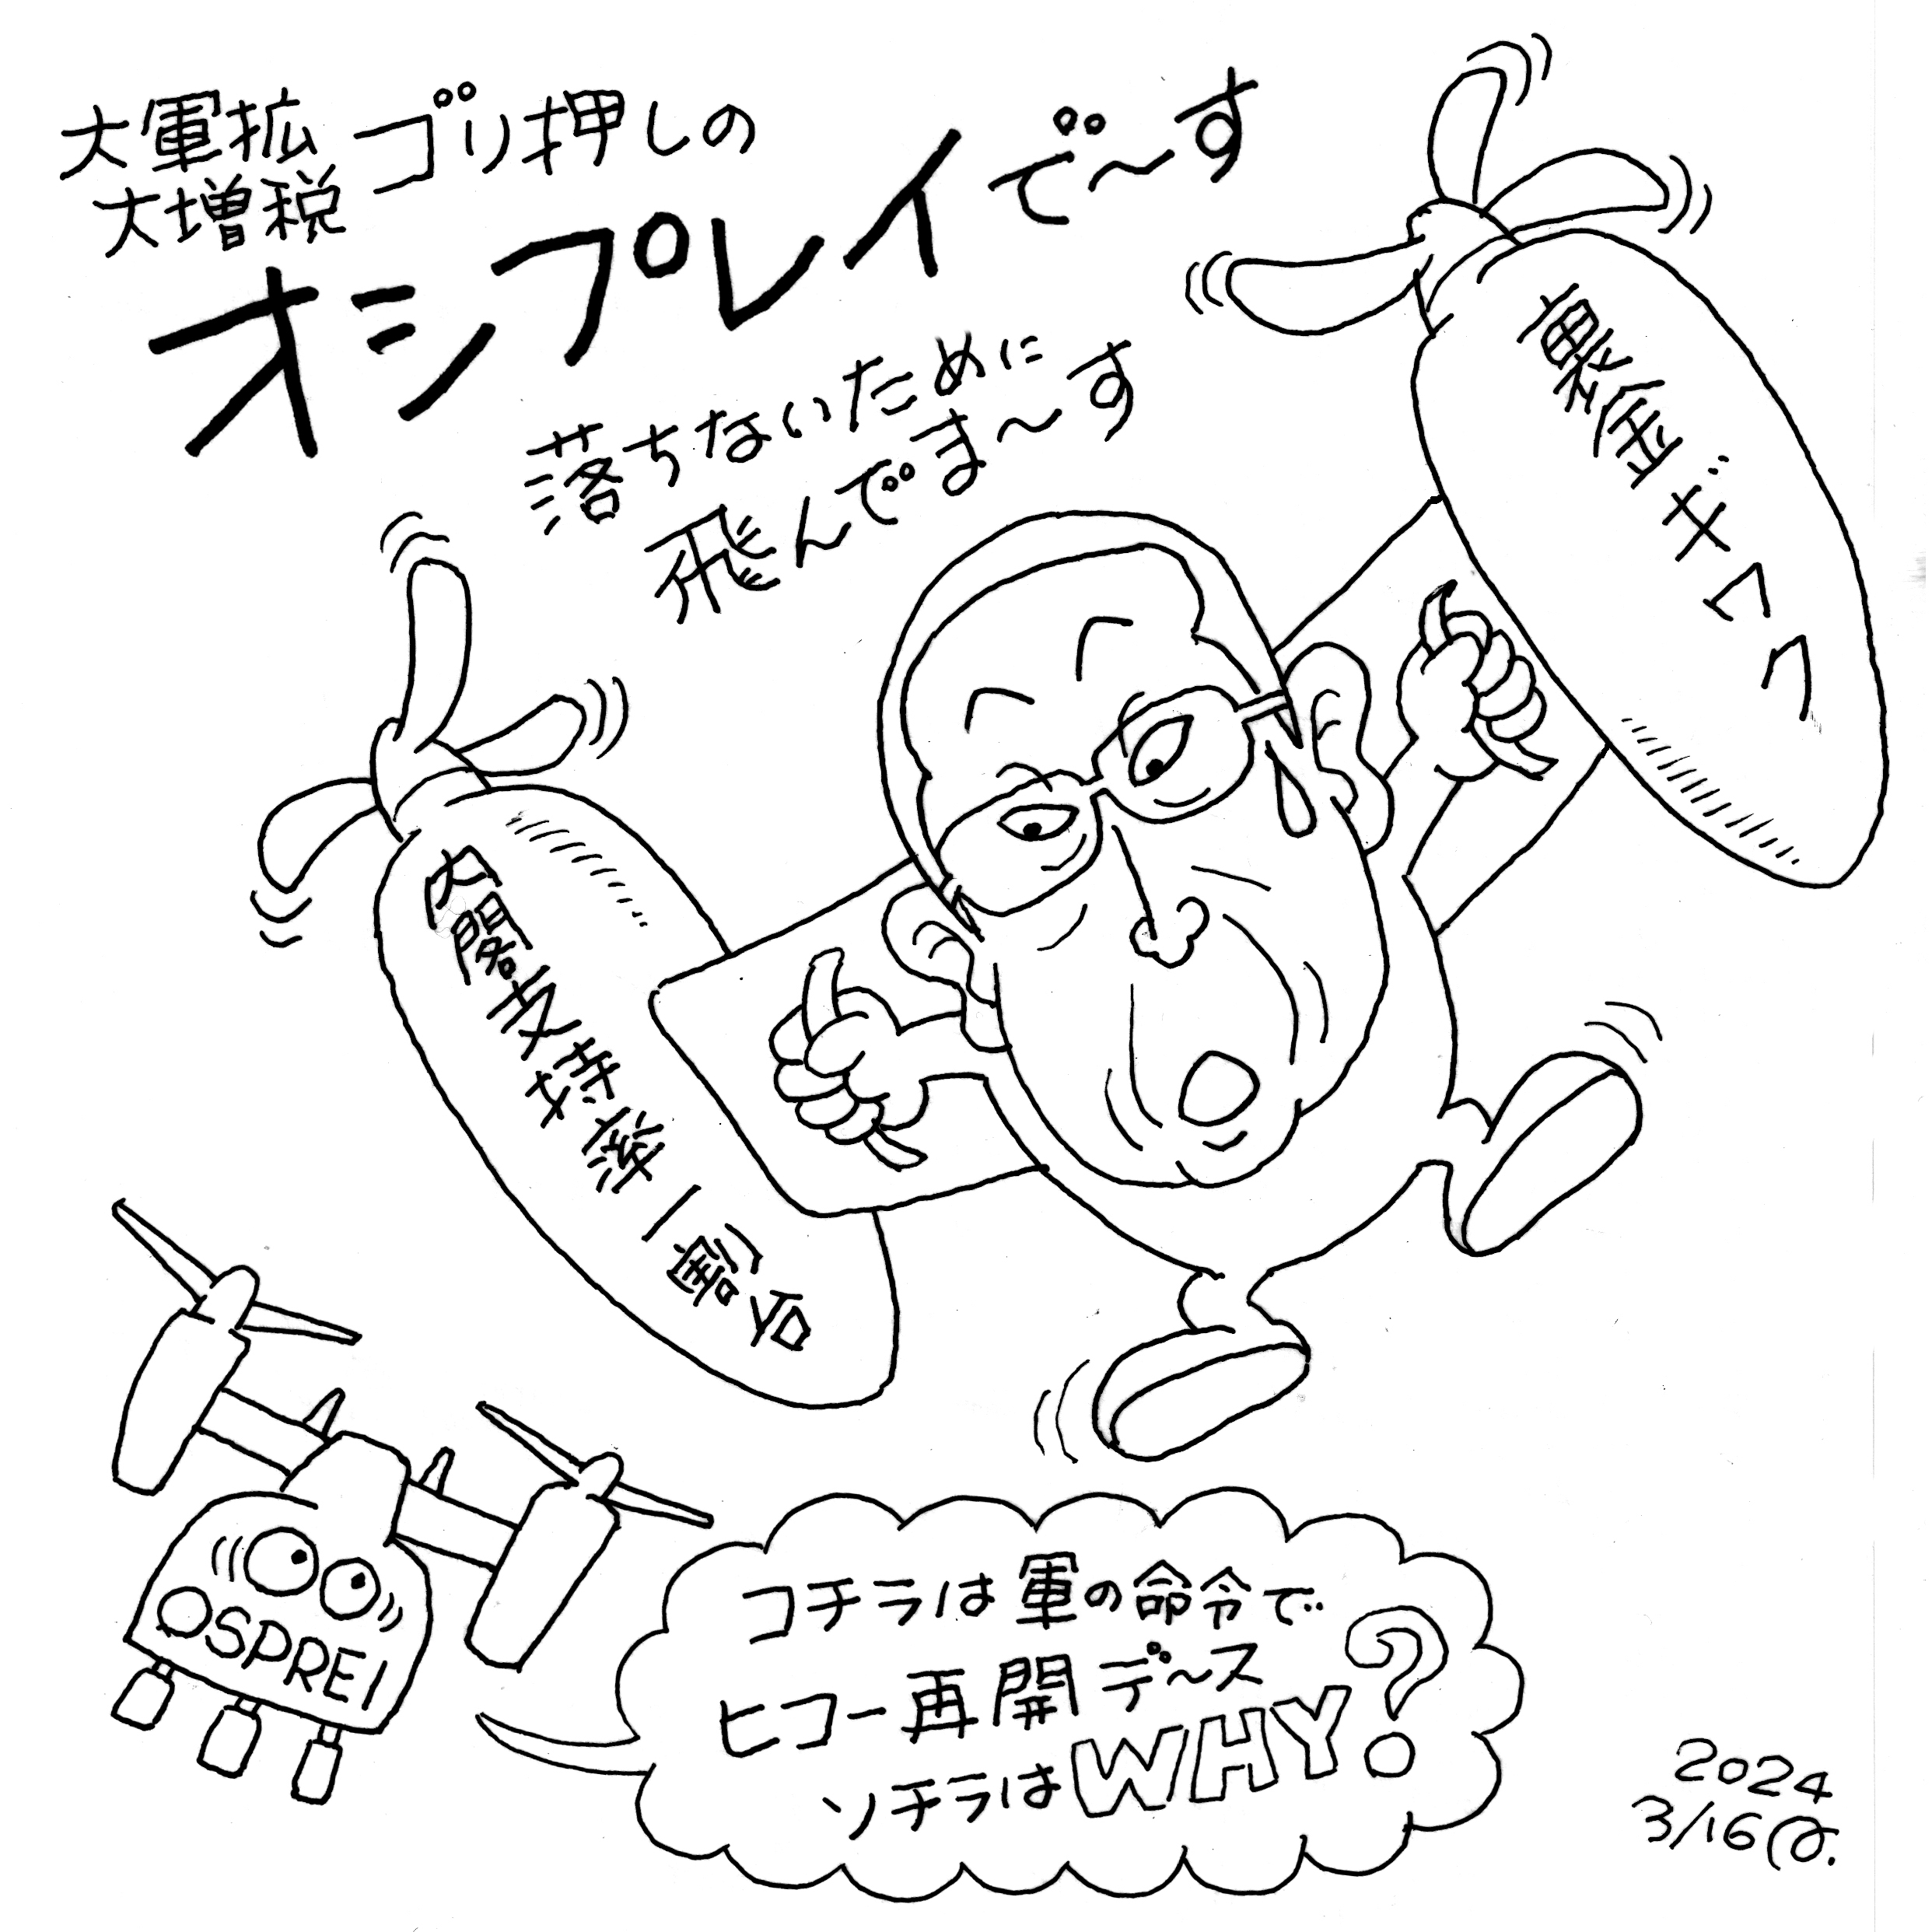 大軍拡
大増税
ゴリ押しの
オシプレイで〜す
落ちないために
飛んでま〜す
裏金ギワク
内閣支持率一割台
OSPREI
コチラは軍の命令で
ヒコー再開デ〜ス
ソチラはWHY?
2024
3/16